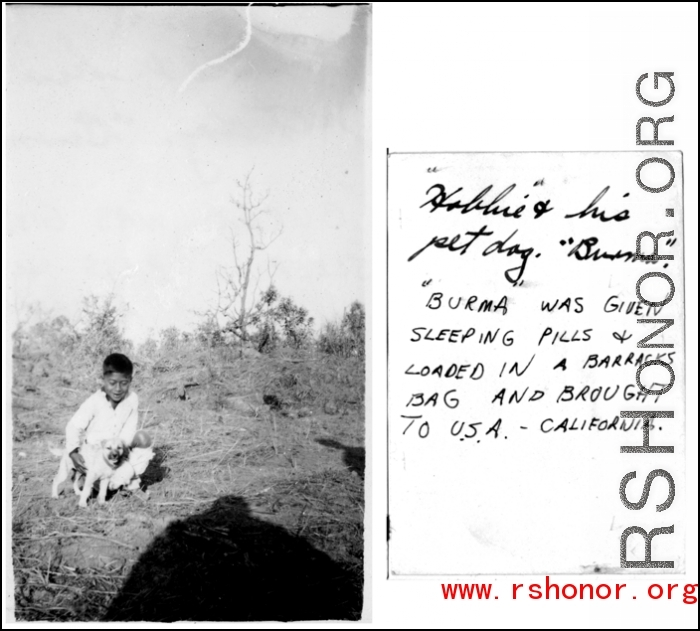 "Hobbie" & his
pet dog. "Burma."
"BURMA" WAS GIVEN
SLEEPING PILLS &
LOADED IN A BARRACKS
BAG AND BROUGHT
TO U.S.A. - CALIFORNIA.
RSHONOR.ORG
www.rshonor.org